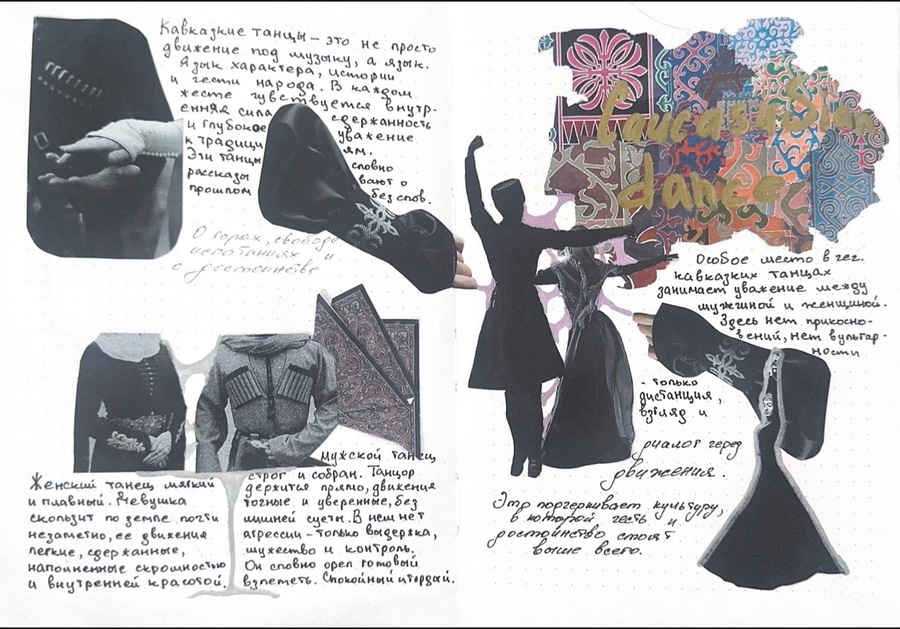 Кавказкие танцы – это не просто
движение под музыку, а язык.
Язык характера, истории
и чести народа. В каждом
жесте чувствуется внутр-
енняя сила сдержанность
и глубокое уважение
к традици ям.
Эти танцы словно
рассказы вают о
прошлом без слов.
О горах, свободе
испытаниях и
о достоинстве
Caucasian
dance
Особое место в чеч.
кавказких танцах
занимает уважение между
мужчиной и женщиной.
Здесь нет прикосно-
вений, нет вульгар-
ности
- только
дистанция,
взгляд и
диалог через
движения.
Это подчеркивает культуру,
в которой честь и
достоинство стоят
выше всего.
Женский танец мягкий
и плавный. Девушка
скользит по земле почти
незаметно, ее движения
легкие, сдержанные,
наполненные скромностью
и внутренней красотой.
Мужской танец
строг и собран. Танцор
держится прямо, движения
точные и уверенные, без
лишней суеты. В нем нет
агрессии - только выдержка,
мужество и контроль.
Он словно орел готовый
взлететь. Спокойный и гордый.